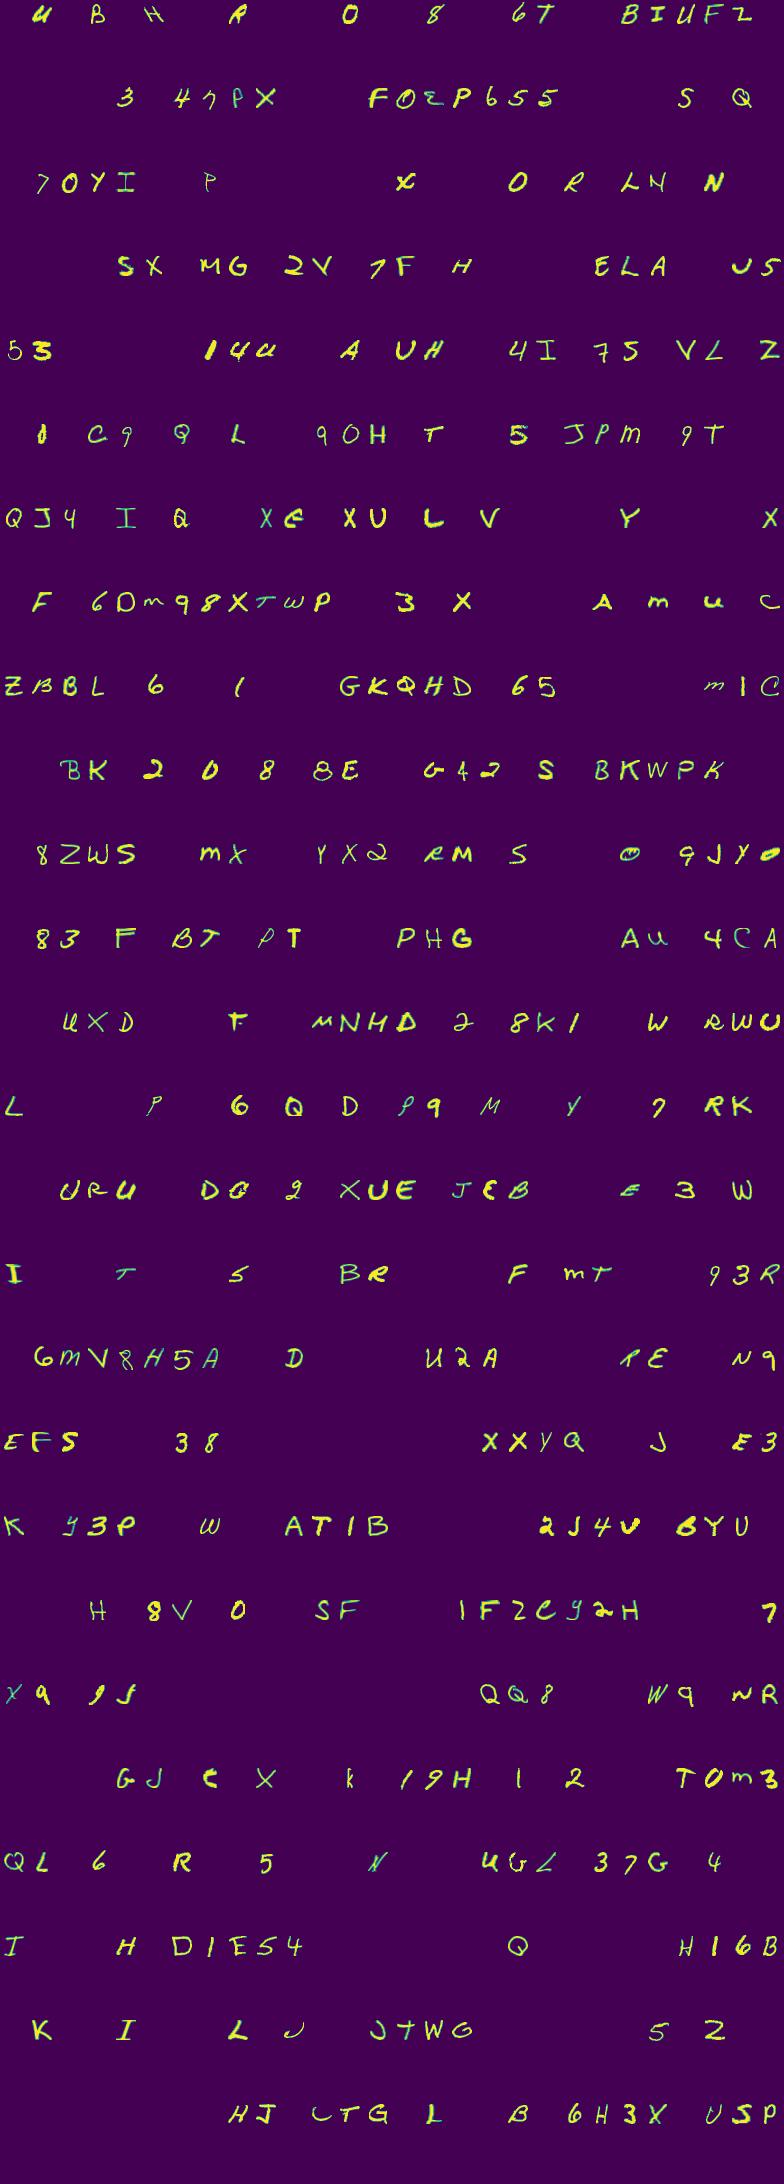 U B H R 0 8 6T BIUFZ
3 47PX FOEP655 S Q
70YI P X O R LN N
SX MG 2V 7F H ELA U5
53 14U A UH 4I 75 VL Z
1 C9 Q L 90H T 5 JPM 9T
QJ4 I Q XE XU L V Y X
F 6DM98XTWP 3 X A M U C
ZBBL 6 1 GKQHD 65 M1C
BK 2 0 8 8E G42 S BKWPK
8ZWS MX YX2 RM S 0 9JY0
83 F BT PT PHG AU 4CA
UXD F MNHD 2 8K1 W RWU
L P 6 Q D P9 M Y 7 RK
URU DO 2 XUE JEB E 3 W
I T 5 BR F MT 93R
6MV8H5A D U2A RE N9
EF5 38 XXYQ J E3
K Y3P W AT1B 2J4V 8YU
H 8V 0 SF 1F2CY2H 7
X9 9J QQ8 W9 NR
GJ C X K 19H 1 2 T0M3
QL 6 R 5 N UGL 37G 4
I H D1E54 Q H16B
K I L J JTWG 5 Z
HJ LTG L B 6H3X USP